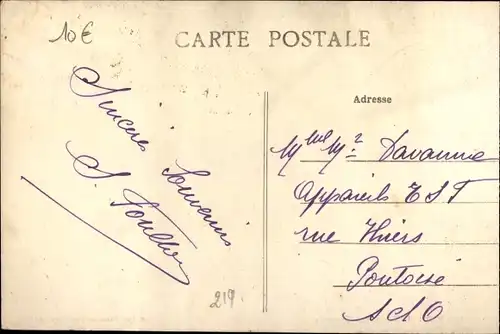 10€
CARTE POSTALE
Sincères
Souvenirs
S.
Adresse
Davanne
Appareils E S T
rue Thiers
Pontoise
S & O
219